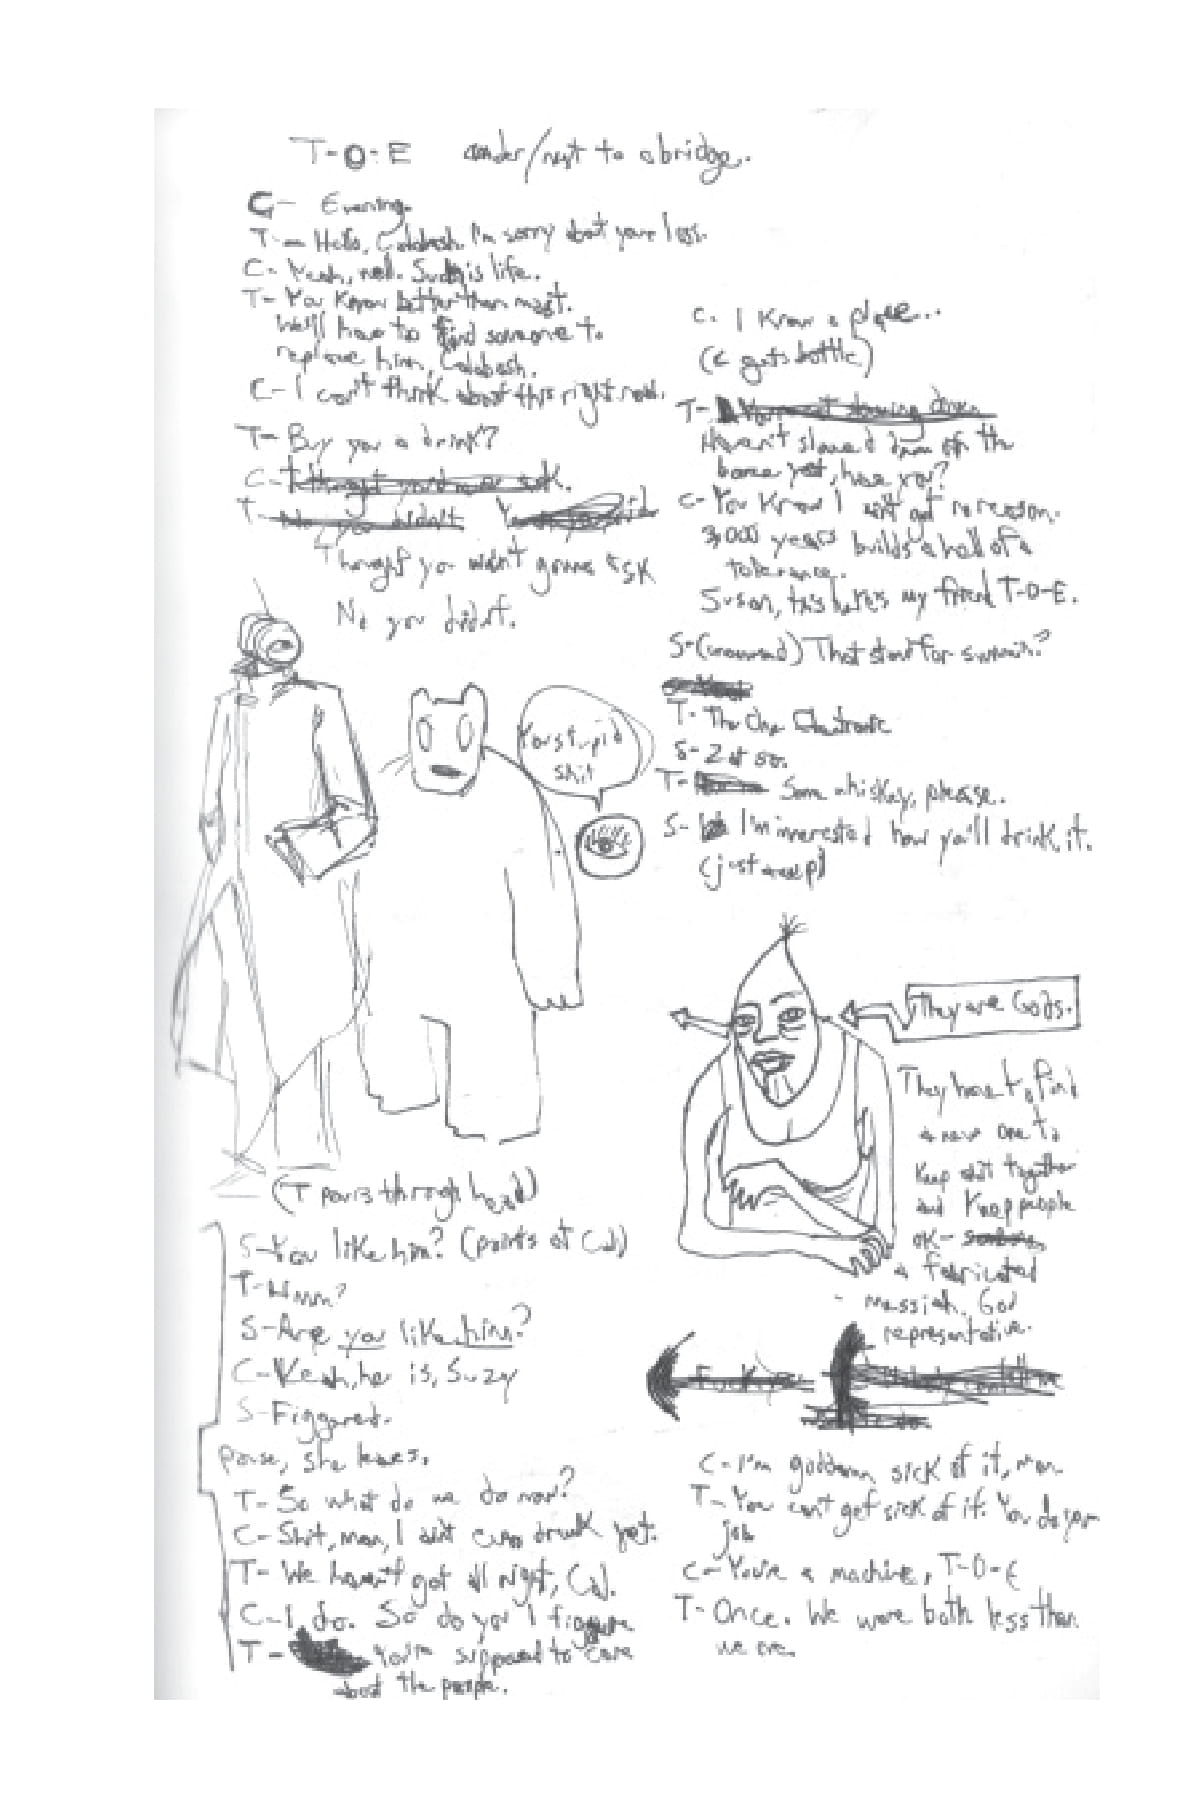 T-O-E under/next to a bridge.
C- Evening.
T- Hello, Calabash. I'm sorry about your loss.
C- Yeah, well. Such is life.
T- You know better than most.
We'll have to find someone to
replace him, Calabash.
C- I can't think about this right now.
T- Buy you a drink?
C- I thought you'd never ask.
T- No you didn't
Thought you wasn't gonna ask
No you didn't.
You stupid
shit
(T pours through head)
S- You like him? (points at Cal)
T- Hmm?
S- Are you like him?
C- Yeah, he is, Suzy
S- Figgered.
pause, she leaves.
T- So what do we do now?
C- Shit, man, I ain't even drunk yet.
T- We haven't got all night, Cal.
C- I do. So do you I figgure
T- You're supposed to care
about the people.
C- I know a place...
(C gets bottle)
T- You're not slowing down
Haven't slowed down on the
booze yet, have you?
C- You know I ain't got no reason.
3,000 years builds a hell of a
tolerance.
Susan, this here's my friend T-O-E.
S- (unamused) That stand for
T- The One Electronic
S-
T- Some whiskey, please.
S- I'm interested how you'll drink it.
(just a
They are Gods.
They have to find
a new one to
keep shit together
and keep people
OK-
a fabricated
messiah, God
representative.
Fuck you
C- I'm goddamn sick of it, man.
T- You can't get sick of it. You do your
job
C- You're a machine, T-O-E
T- Once. We were both less than
we are.